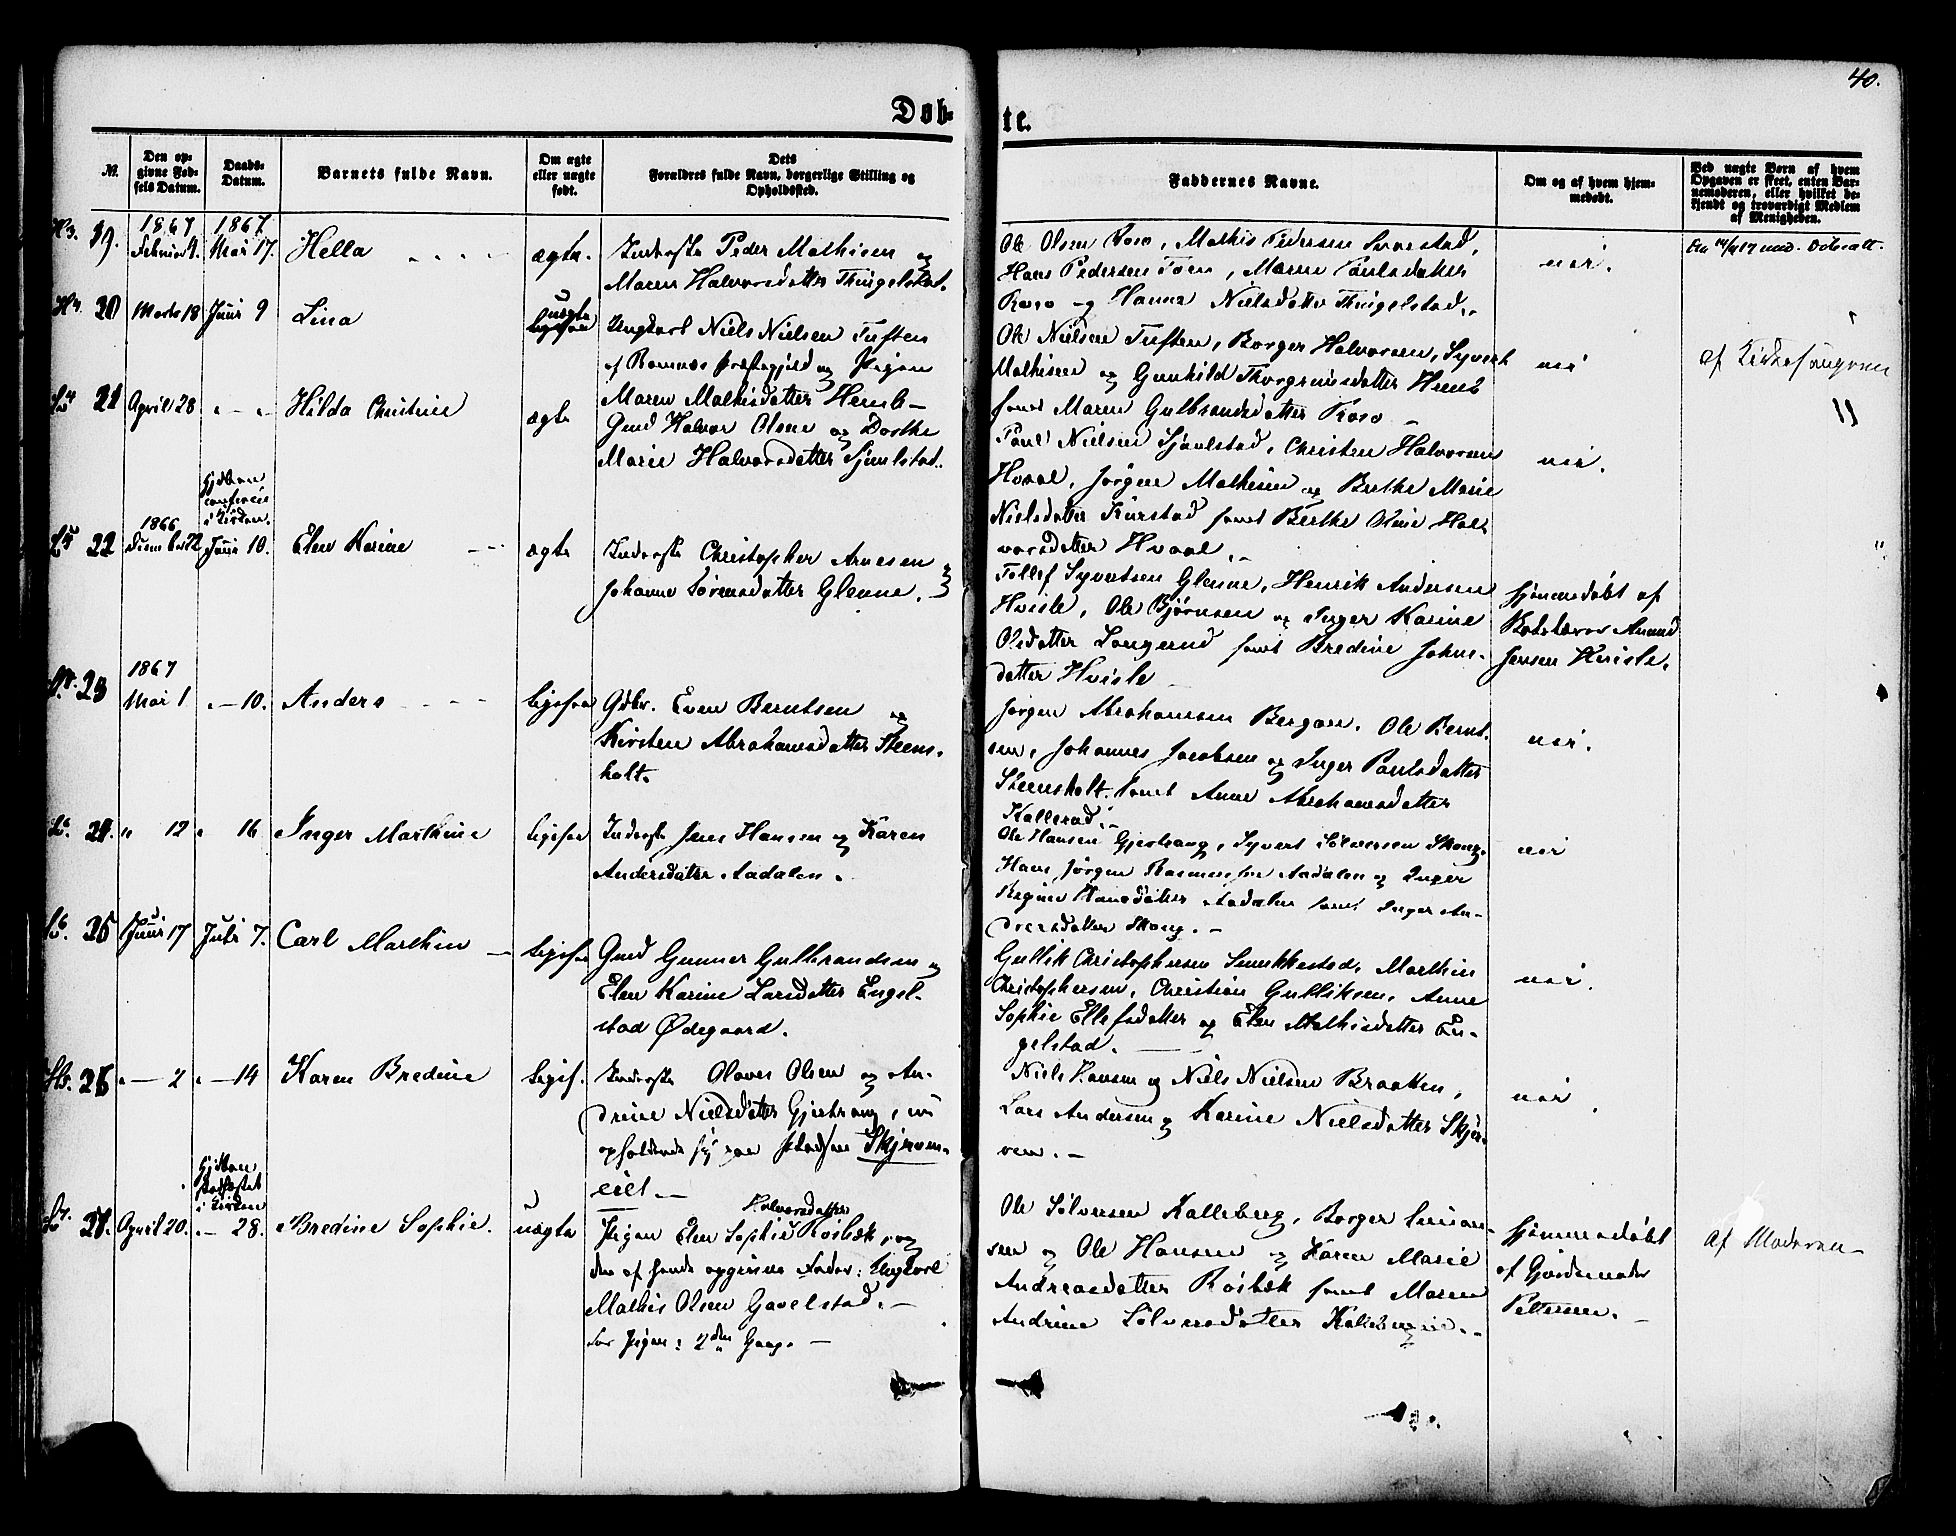 40.
Døbte.
№.
Den opgivne Fødsels Datum.
Daabs-Datum.
Barnets fulde Navn.
Om ægte eller uægte født.
Dets Forældres fulde Navn, borgerlige Stilling og Opholdssted.
Faddernes Navne.
Om og af hvem hjemmedøbt.
Ved uægte Børn af hvem Opgaven er skeet, enten Barnemoderen, eller hvilket bekjendt og troværdigt Medlem af Menigheden.
19.
1867
1867
Mai 17.
Hella
ægte.
Inderste Peder Mathisen og
Maren Halvorsdatter Thingelstad.
Ole Olsen Roso, Mathis Pedersen
Hans Pedersen Moen, Maren Paulsdatter
Roso og Hanna Nielsdatter Thingelstad.
nei.
20
Marts 18
Juni 9
Lina
uægte
Ungkarl Niels Nielsen Tuften
af Ramnæs Præstegjeld og Pigen
Maren Mathisdatter Hemb
Ole Nielsen Tuften, Borger Halvorsen, Syvert
Mathisen og Gunhild Thorgrimsdatter Hemb
samt Maren Gulbrandsdatter Roso
nei
af Kirkesangeren
21
April 28
" — "
Hilda Christine
ægte
Gmd Halvor Olsen og Dorthe
Marie Halvorsdatter Sjuelstad.
Paul Nielsen Sjuelstad, Christen Halvorsen
Hvaal, Jørgen Mathisen og Berthe Marie
Nielsdatter samt Berthe Oline Hal-
vorsdatter Hvaal.
nei.
22
1866
December 22
i Kirken.
Juni 10.
Elen Karine
ægte
Inderste Christopher Arnesen og
Johanne Sørensdatter Glenne.
Tollef Syvertsen Glenne, Henrik Andersen
Hvisle, Ole Bjørnsen og Inger Karine
Olsdatter Langerud samt Bredine Johns-
datter Hvisle
Hjemmedøbt af
Jensen Hvisle.
23
1867
Mai 1
" — 10.
Anders
ligesaa
Gdbr. Even Berntsen og
Kirsten Abrahamsdatter Steens-
holt.
Jørgen Abrahamsen Bergan, Ole Bernt-
sen, Johannes Jacobsen og Inger Paulsdatter
Steensholt samt Anne Abrahamsdatter
Kallerød.
nei.
24.
" 12
" 16
Inger Marthine
ligesaa
Inderste Jens Hansen og Karen
Andersdatter Aadalen.
Ole Hansen Gjertrang, Syvert Sølversen Skoug,
Hans Jørgen Rasmussen Aadalen og Inger
Regine Hansdatter Aadalen samt Inger An-
dersdatter Skoug.
nei
25
Juni 17
Juli 7.
Carl Marthin
ligesaa
Gmd Gunner Gulbrandsen og
Elen Karine Larsdatter Engel-
stad Ødegaard.
Gullik Christophersen Smukkestad, Marthin
Christophersen, Christian Gulliksen, Anne
Sophie Ellefsdatter og Elen Mathisdatter En-
gelstad.
nei.
26
" — 2
" — 14
Karen Bredine
ligesf.
Inderste Olaves Olsen og An-
drine Nielsdatter Gjertrang,
opholdende sig paa Skjerven-
eiet
Niels Hansen og Niels Nielsen Braaten,
Lars Andersen og Karine Nielsdatter Skjer-
ven.
nei.
27.
April 20.
stadfæstet
i Kirken
" — 28.
Bredine Sophie.
uægte
Halvorsdatter
Pigen Elen Sophie Røsbæk, og
den af hende opgivne Fader: Ungkarl
Mathis Olsen Gavelstad.
For Pigen: 2den Gang.
Ole Sølversen Kalleberg, Borger Simon-
sen og Ole Hansen og Karen Marie
Andreasdatter Røsbæk samt Maren
Andrine Sølversdatter
Hjemmedøbt
af Gjordemoder
Pettersen.
af Moderen